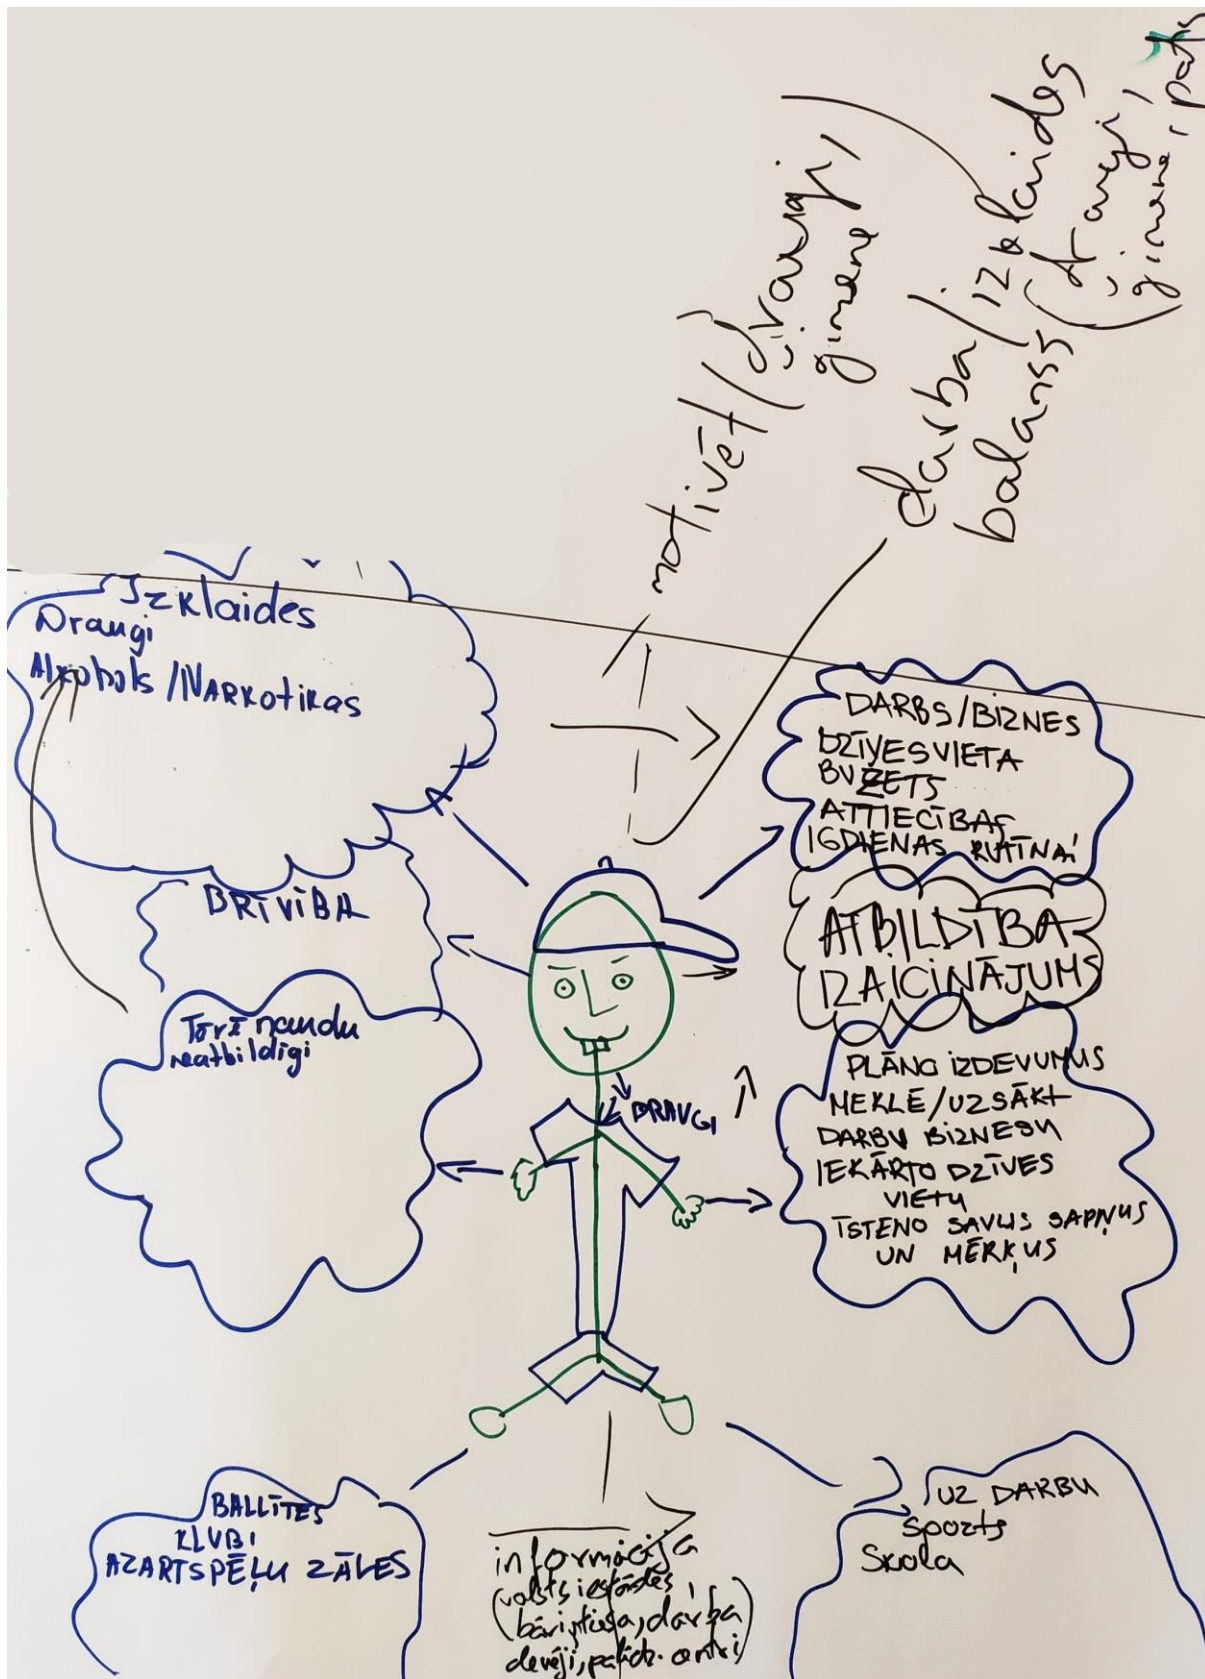 motivēt (draugi,
ģimene
darba/izklaides
balanss (draugi,
ģimene, pats
Izklaides
Draugi
Alkohols/NARKOtikas
DARBS/BIZNES
DZĪVESVIETA
BUŽETS
ATTIECĪBAS
IGDIENAS RUTĪNAI
BRĪVĪBA
ATBILDĪBA
IZAICINĀJUMS
Tērē naudu
neatbildīgi
DRAUGI
PLĀNO IZDEVUMUS
MEKLĒ/UZSĀKT
DARBU BIZNESU
IEKĀRTO DZĪVES
VIETU
ĪSTENO SAVUS SAPŅUS
UN MĒRĶUS
BALLĪTES
KLUBI
AZARTSPĒĻU ZĀLES
informācija
(valsts iestādes
bāriņtiesa, darba
devēji, palīdz. centri)
UZ DARBU
Sports
Skola